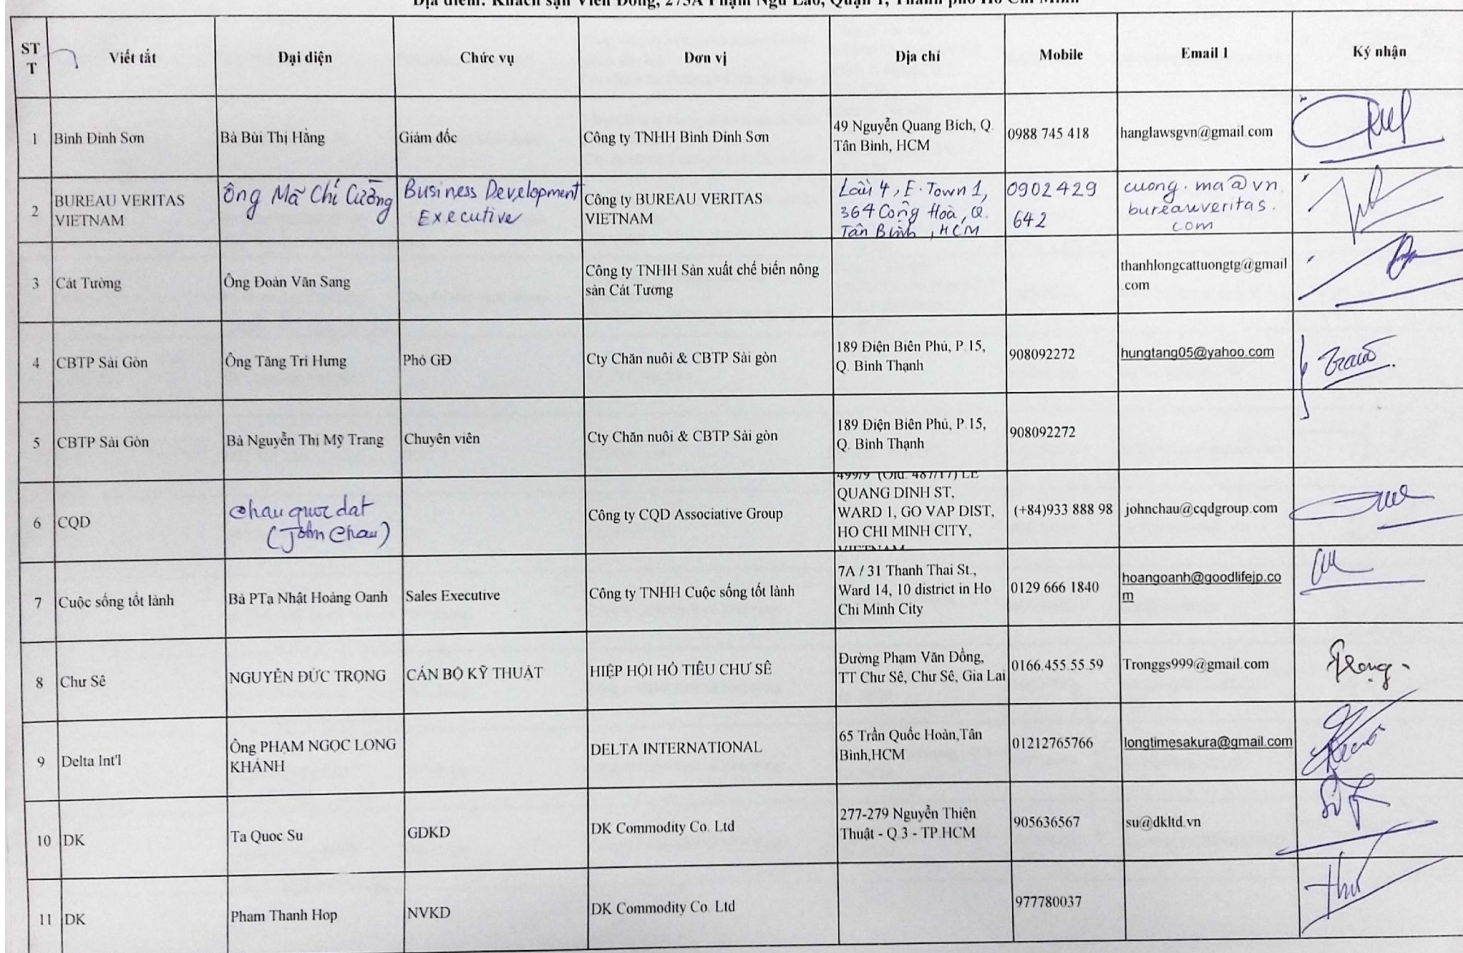 Địa điểm: Khách sạn Viễn Đông, 275A Phạm Ngũ Lão, Quận 1, Thành phố Hồ Chí Minh
STT Viết tắt Đại diện Chức vụ Đơn vị Địa chỉ Mobile Email 1 Ký nhận
1 Bình Dinh Sơn Bà Bùi Thị Hằng Giám đốc Công ty TNHH Bình Dinh Sơn 49 Nguyễn Quang Bích, Q.
Tân Bình, HCM 0988 745 418 hanglawsgvn@gmail.com
2 BUREAU VERITAS
VIETNAM Ông Mã Chí Cường Business Development
Executive Công ty BUREAU VERITAS
VIETNAM Lầu 4, E.Town 1,
364 Cộng Hoà, Q.
Tân Bình, HCM 0902 429
642 cuong.ma@vn.
bureauveritas.
com
3 Cát Tường Ông Đoàn Văn Sang Công ty TNHH Sản xuất chế biến nông
sản Cát Tương thanhlongcattuongtg@gmail
.com
4 CBTP Sài Gòn Ông Tăng Trí Hưng Phó GĐ Cty Chăn nuôi & CBTP Sài gòn 189 Điện Biên Phủ, P.15,
Q. Bình Thạnh 908092272 hungtang05@yahoo.com
5 CBTP Sài Gòn Bà Nguyễn Thị Mỹ Trang Chuyên viên Cty Chăn nuôi & CBTP Sài gòn 189 Điện Biên Phủ, P.15,
Q. Bình Thạnh 908092272
6 CQD chau quoc dat
(John Chau) Công ty CQD Associative Group 499/9 (Old: 487/17) LE
QUANG DINH ST,
WARD 1, GO VAP DIST,
HO CHI MINH CITY,
VIETNAM (+84)933 888 98 johnchau@cqdgroup.com
7 Cuộc sống tốt lành Bà PTạ Nhật Hoàng Oanh Sales Executive Công ty TNHH Cuộc sống tốt lành 7A / 31 Thanh Thai St.,
Ward 14, 10 district in Ho
Chi Minh City 0129 666 1840 hoangoanh@goodlifejp.co
m
8 Chư Sê NGUYỄN ĐỨC TRỌNG CÁN BỘ KỸ THUẬT HIỆP HỘI HỒ TIÊU CHƯ SÊ Đường Phạm Văn Đồng,
TT Chư Sê, Chư Sê, Gia Lai 0166.455.55.59 Tronggs999@gmail.com
9 Delta Int'l Ông PHẠM NGỌC LONG
KHÁNH DELTA INTERNATIONAL 65 Trần Quốc Hoàn,Tân
Bình,HCM 01212765766 longtimesakura@gmail.com
10 DK Ta Quoc Su GDKD DK Commodity Co. Ltd 277-279 Nguyễn Thiện
Thuật - Q.3 - TP.HCM 905636567 su@dkltd.vn
11 DK Pham Thanh Hop NVKD DK Commodity Co. Ltd 977780037